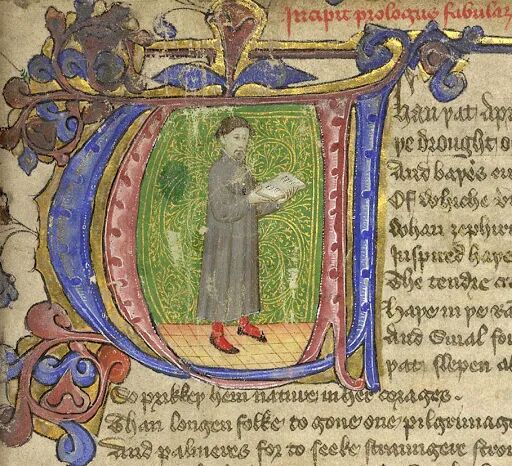 Incipit prologus fabular
Whan þat Apr
þe drought o
And baþes eu
Of whiche v
Whan zephir
Inspired haþe
The tendre cr
Haþe in þe Ra
And Smal fo
þat slepen al
So prikkeþ hem nature in her corages .
Than longen folke to gone one pilgrimage
And palmeres for to seeke straungere stron